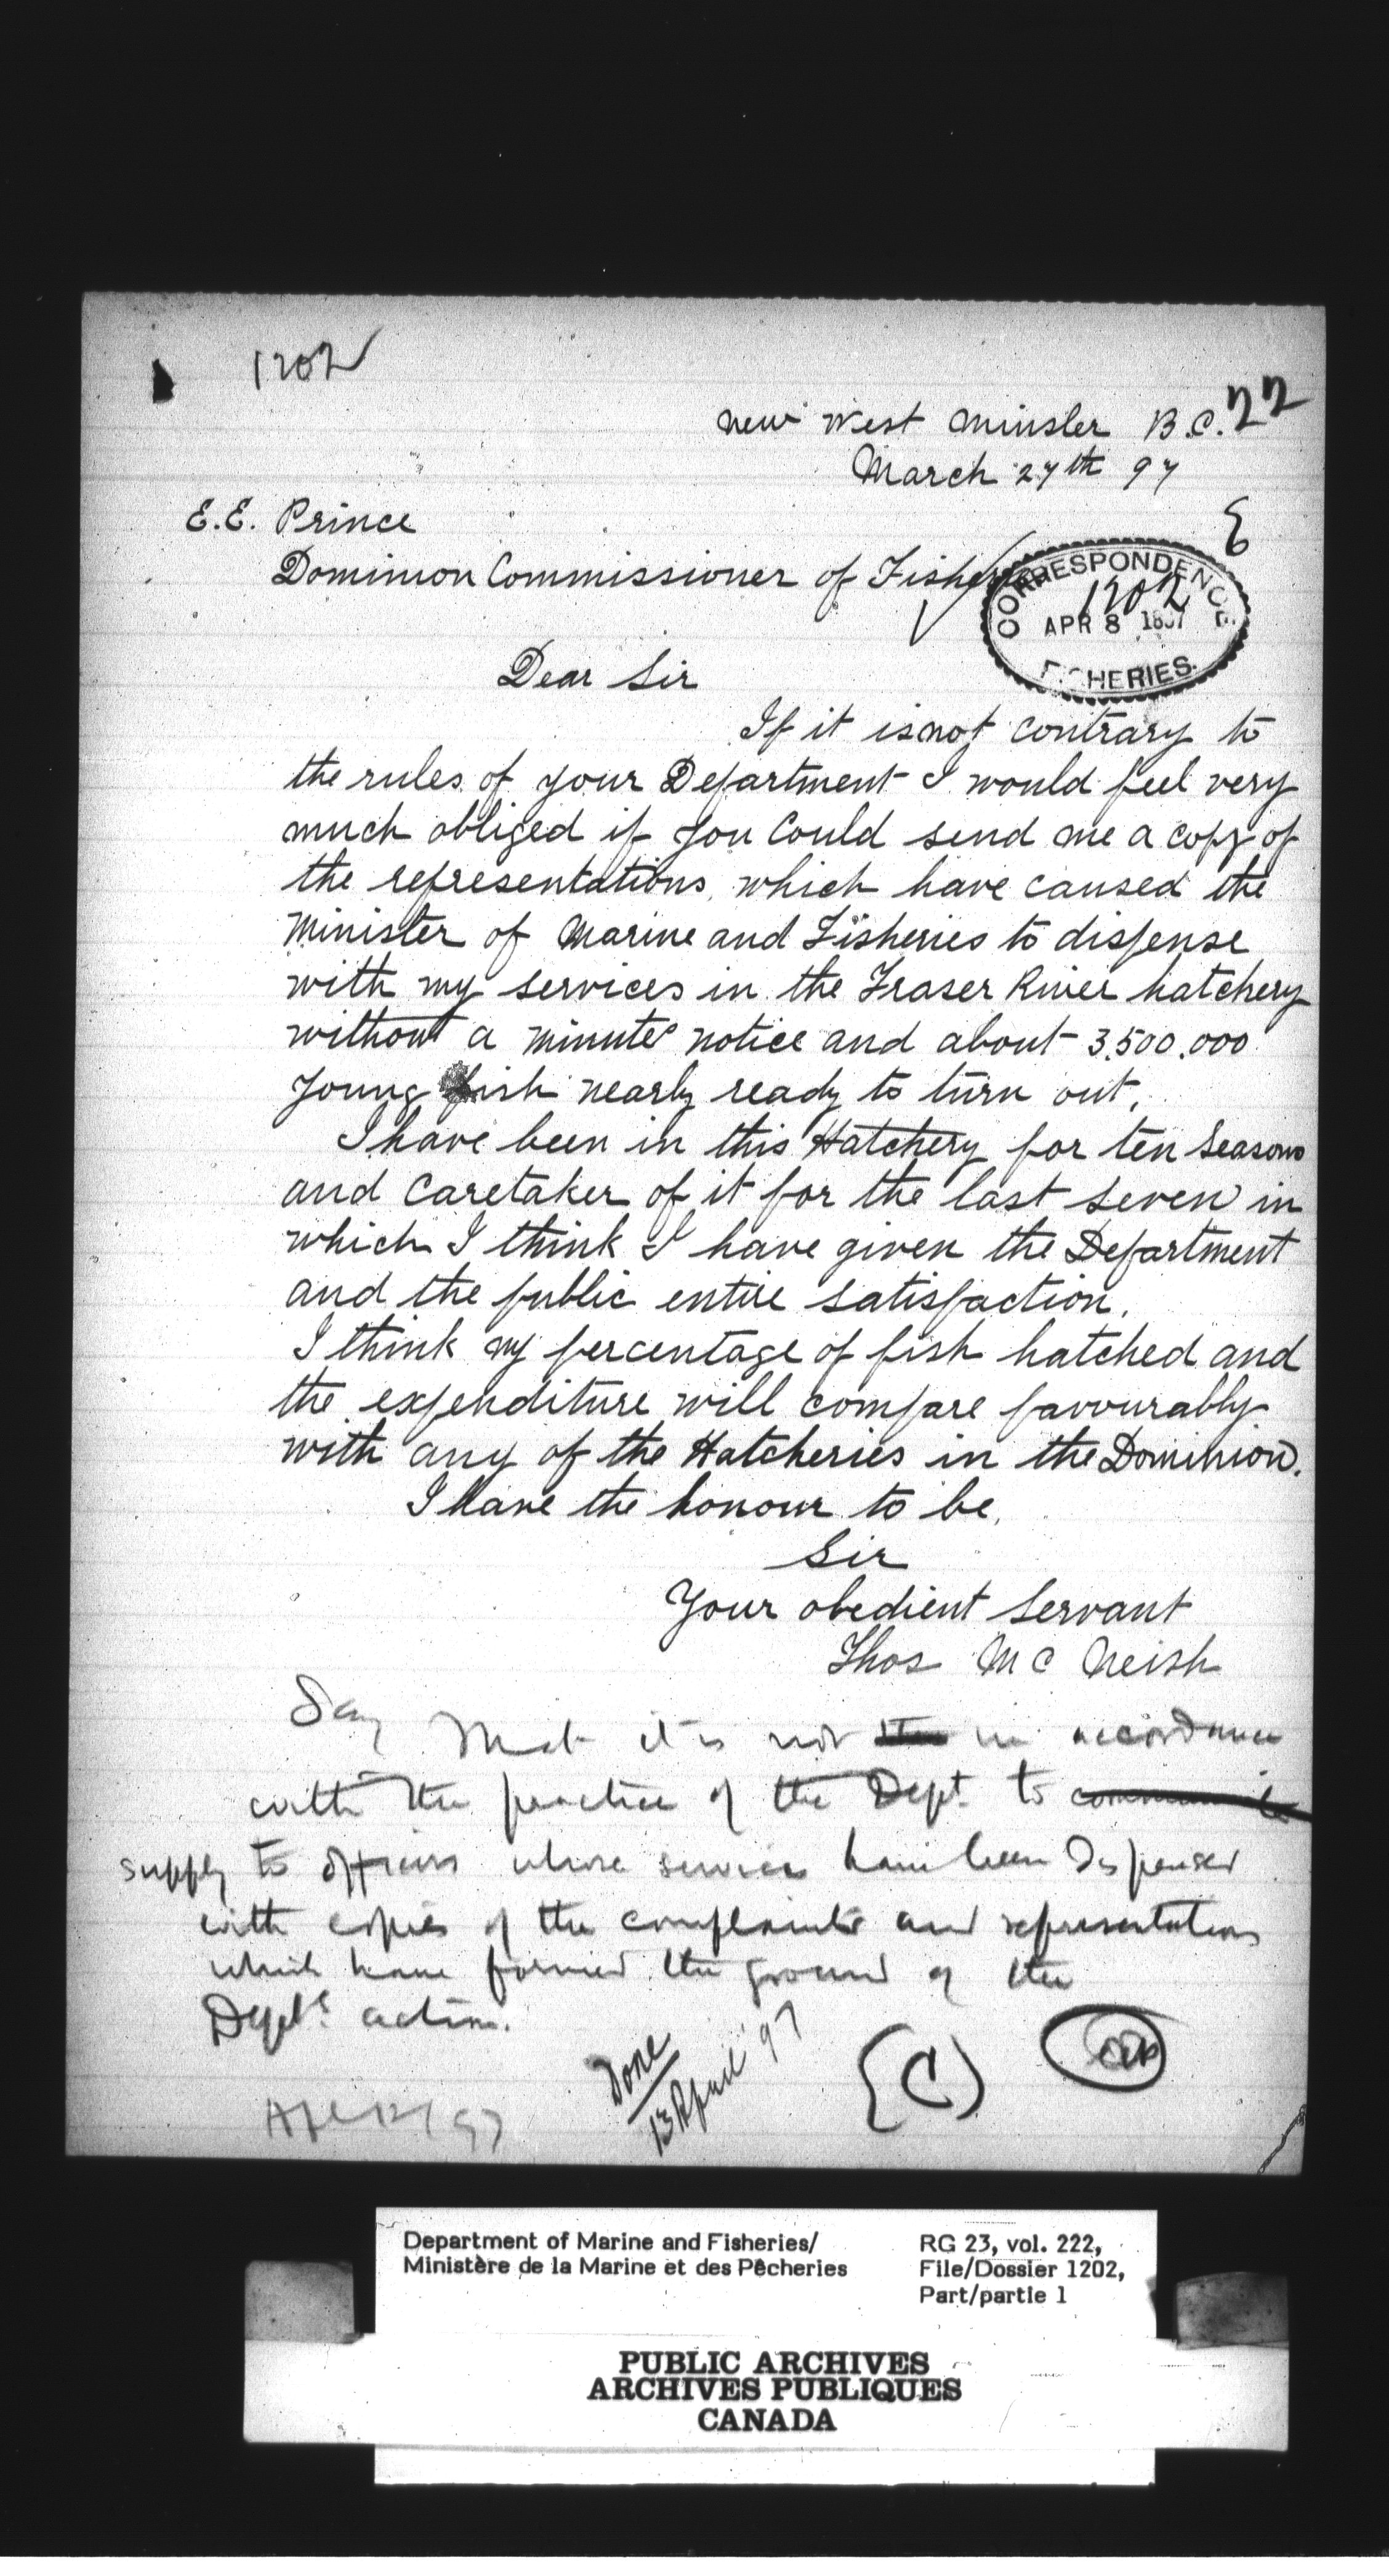 1202
22
New West Minster B.C.
March 27th 97
E.E. Prince
Dominion Commissioner of Fisheries
E
CORRESPONDENCE
1202
APR 8 1897
FISHERIES.
Dear Sir
If it is not contrary to
the rules of your Department I would feel very
much obliged if you could send me a copy of
the representations, which have caused the
Minister of Marine and Fisheries to dispense
with my services in the Fraser River hatchery
without a minutes notice and about 3.500.000
young fish nearly ready to turn out.
I have been in this Hatchery for ten Seasons
and Caretaker of it for the last seven in
which I think I have given the Department
and the public entire satisfaction.
I think my percentage of fish hatched and
the expenditure will compare favourably
with any of the Hatcheries in the Dominion.
I have the honour to be,
Sir
Your obedient Servant
Thos Mc Neish
Say that it is not in accordance
with the practice of the Dept. to
supply to officers whose services have been dispensed
with copies of the complaints and representations
which have formed the ground of the
Dept's action.
Done
13 April '97
(C)
Department of Marine and Fisheries/
Ministère de la Marine et des Pêcheries
RG 23, vol. 222,
File/Dossier 1202,
Part/partie 1
PUBLIC ARCHIVES
ARCHIVES PUBLIQUES
CANADA